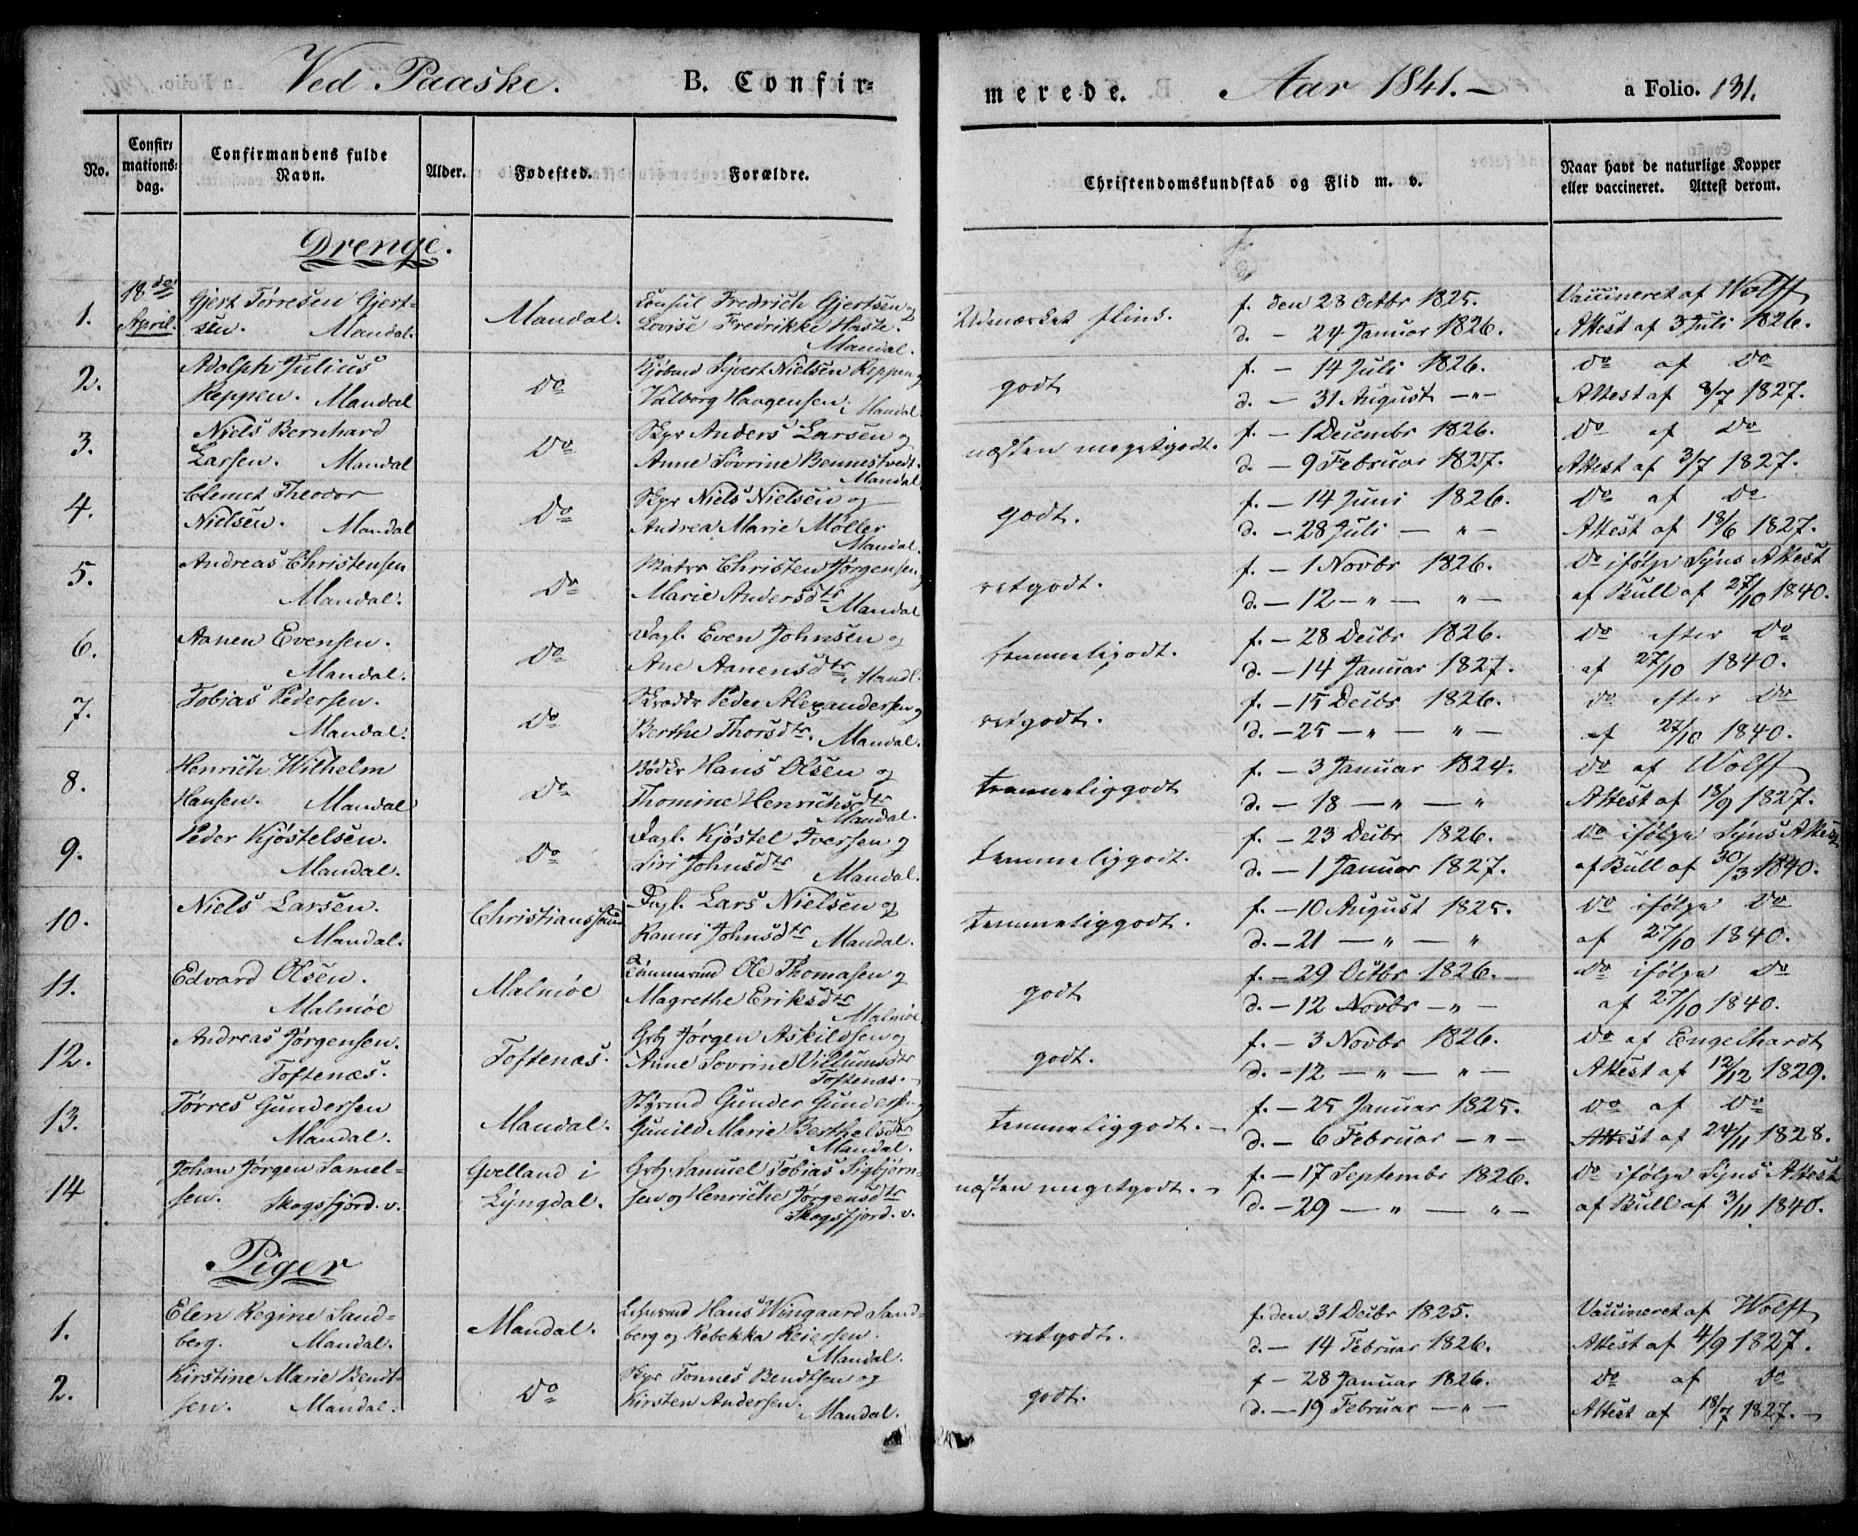 Ved Paaske. B. Confir- merede. Aar 1841.- a Folio. 131.
No. Confirmations- dag. Confirmandens fulde Navn. Alder. Fødested. Forældre. Christendomskundskab og Flid m. v. Naar havt de naturlige Kopper eller vaccineret. Attest derom.
Drenge.
18de Gjert Törresen Gjert- Consul Fredrich Gjertsen og f. den 28 Octbr 1825. Vaccineret af Wolff
1. April. sen. Mandal. Mandal. Lovise Fredrikke Haste. Udmærket flins. d. - 24 Januar 1826. Attest af 3 Juli 1826.
Mandal.
Adolph Julius Kjöbmd Sjvert Nielsen Reppen og f. - 14 Juli 1826. Do af Do
2. Reppen. Mandal Do Valborg Haagensen, Mandal godt d. - 31 August -"- Attest af 8/7 1827.
Niels Bernhard Skpr Anders Larsen og f. - 1 Decembr 1826. Do af Do
3. Larsen. Mandal Do Anne Sovrine Bennestvedt. næsten megetgodt. d. - 9 Februar 1827. Attest af 3/7 1827.
Mandal
Clemet Theodor Skpr Niels Nielsen og f. - 14 Juni 1826. Do af Do
4. Nielsen. Mandal Do Andrea Marie Møller godt. d. - 28 Juli - " - Attest af 18/6 1827.
Mandal.
Andreas Christensen Matrs Christen Jørgensen f. - 1 Novbr 1826. Do ifölge Syns Attest
5. Mandal. Do Marie Andersdtr Mandal retgodt. d. - 12 - " - " - af Bull af 27/10 1840.
Aanen Evensen. Dagl. Even Johnsen og f. - 28 Decbr 1826. Do efter Do
6. Mandal. Do Ane Aanensdtr Mandl. temmeligodt. d. - 14 Januar 1827. af 27/10 1840.
Tobias Pedersen. Skrædr Peder Alexandersen og f. - 15 Decbr 1826. Do efter Do
7. Mandal. Do Berthe Thorsdtr. Mandal. retgodt. d. - 25 - " - " - af 27/10 1840.
Henrich Wilhelm Bödkr Hans Olsen og f. - 3 Januar 1824. Do af Wolff
8. Hansen. Mandal Do Thomine Henrichsdtr temmeliggodt d. - 18 - " - " Attest af 18/9 1827.
Mandal.
Peder Kjöstelsen. Dagl. Kjöstel Iversen og f. - 23 Decbr 1826. Do ifölge Syns Attest
9. Mandal. Do Siri Johnsdtr Mandal. temmeliggodt. d. - 1 Januar 1827. af Bull af 30/3 1840.
Niels Larsen. Christianssand Dagl. Lars Nielsen og f. - 10 August 1825. Do ifölge Do
10. Mandal. Ranni Johnsdtr Mandal. temmeliggodt. d. - 21 - " - " af 27/10 1840.
Edvard Olsen. Tömmermd Ole Thomasen og f. - 29 Octbr 1826. Do ifölge Do
11. Malmöe Malmöe Magrethe Eriksdtr godt d. - 12 Novbr -"- af 27/10 1840.
Malmöe
Andreas Jørgensen. Grbr Jørgen Askildsen og f. - 3 Novbr 1826. Do af Engelhardt
12. Toftenæs. Toftenæs. Anne Sovrine Villumsdtr godt. d. - 12 - " - " - Attest af 12/12 1829.
Toftenæs.
Törres Gundersen Gunder Gundersen og f. - 25 Januar 1825. Do af Do
13. Mandal. Mandal. Gunild Marie Berthelsdtr temmeliggodt. - d. - 6 Februar -"- Attest af 24/11 1828.
Mandal.
Johan Jørgen Samel- Qvelland i Grbr. Samuel Tobias Sigbjørn- f. - 17 Septembr 1826. Do ifölge Syns Attest
14 sen. Skogsfjord. v. Lyngdal. sen og Henriche Jørgensdtr næsten megetgodt. - d. - 29 - " - " - af Bull af 3/11 1840.
Skogsfjord. v.
Piger
Elen Regine Sand- Hans Wingaard Sand- f. den 31 Decbr 1825. Vaccineret af Wolff
1. berg. Mandal. Mandal. berg og Rebekka Reiersen. retgodt. d. - 14 Februar 1826. Attest af 4/9 1827.
Mandal.
Kirstine Marie Bendt- Skpr Tönnes Bendtsen og f - 28 Januar 1826. Do af Do
2. sen. Mandal. Do Kirsten Andersen. Mandal. godt. d. - 19 Februar -"- Attest af 18/7 1827. -